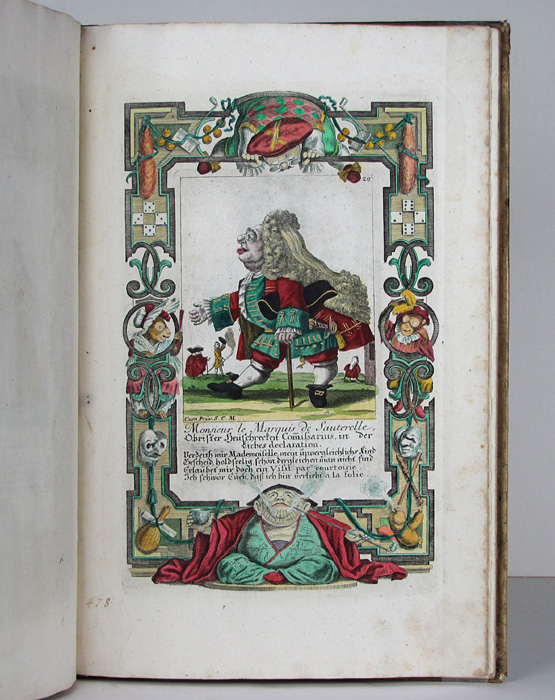 29
Cum Priv. S. C. M.
Monsieur le Marquis de Sauterelle,
Obrister Heuschrecken Comissarius, in der
Liebes declaration.
Verzeith mir Mademoiselle, mein unvergleichliche Kind
holdseelig, schön dergleichen man nicht find
Erlaubet mir doch ein Visit par courtoisie
Ich schwör Euch, daß ich bin verliebt a la folie
478.